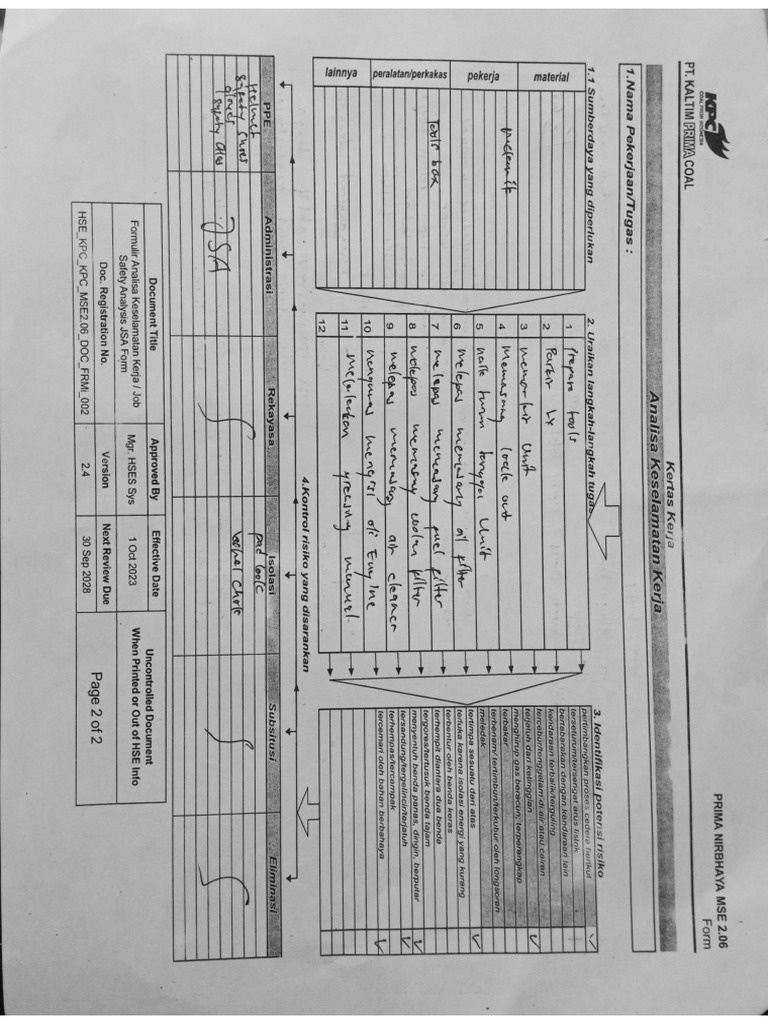 KPC
COAL FROM INDONESIA
PT. KALTIM PRIMA COAL
PRIMA NIRBHAYA MSE 2.06
Form
Kertas Kerja
Analisa Keselamatan Kerja
1.Nama Pekerjaan/Tugas :
1.1 Sumberdaya yang diperlukan
material
pekerja
mekanik
peralatan/perkakas
Tools box
lainnya
2. Uraikan langkah-langkah tugas
1 Prepare tools
2 Parkir LV
3 memarkir unit
4 Memasang lock out
5 naik turun tangga unit
6 melepas memasang oil filter
7 melepas memasang fuel filter
8 melepas memasang coolan filter
9 melepas memasang air cleaner
10 menguras mengisi oli Engine
11 melakukan greasing manual
12
3. Identifikasi potensi risiko
pertimbangkan proses cedera berikut ✓
tersetrum/tersengat arus listrik
bertabrakan dengan kendaraan lain
kendaraan terbalik/terguling
tercebur/tenggelam di air atau cairan
terjatuh dari ketinggian ✓
menghirup gas beracun, terperangkap
terbakar
terbenam/tertimbun/terkubur oleh longsoran
meledak
tertimpa sesuatu dari atas ✓
terluka karena isolasi energi yang kurang
terbentur oleh benda keras
terhempit diantara dua benda
tergores/tertusuk benda tajam
menyentuh benda panas, dingin, berputar ✓
tersandung/tergelincir/terjatuh ✓
terhempas/tercampak
tercemari oleh bahan berbahaya ✓
4.Kontrol risiko yang disarankan
PPE
Administrasi
Rekayasa
Isolasi
Subsitusi
Eliminasi
Helmet
Safety shoes
gloves
Safety glas
JSA
pad lock
wheel Chok
Document Title
Approved By
Effective Date
Uncontrolled Document
When Printed or Out of HSE Info
Formulir Analisa Keselamatan Kerja / Job
Safety Analysis JSA Form
Mgr. HSES Sys
1 Oct 2023
Doc. Registration No.
Version
Next Review Due
Page 2 of 2
HSE_KPC_KPC_MSE2.06_DOC_FRM_002
2.4
30 Sep 2028